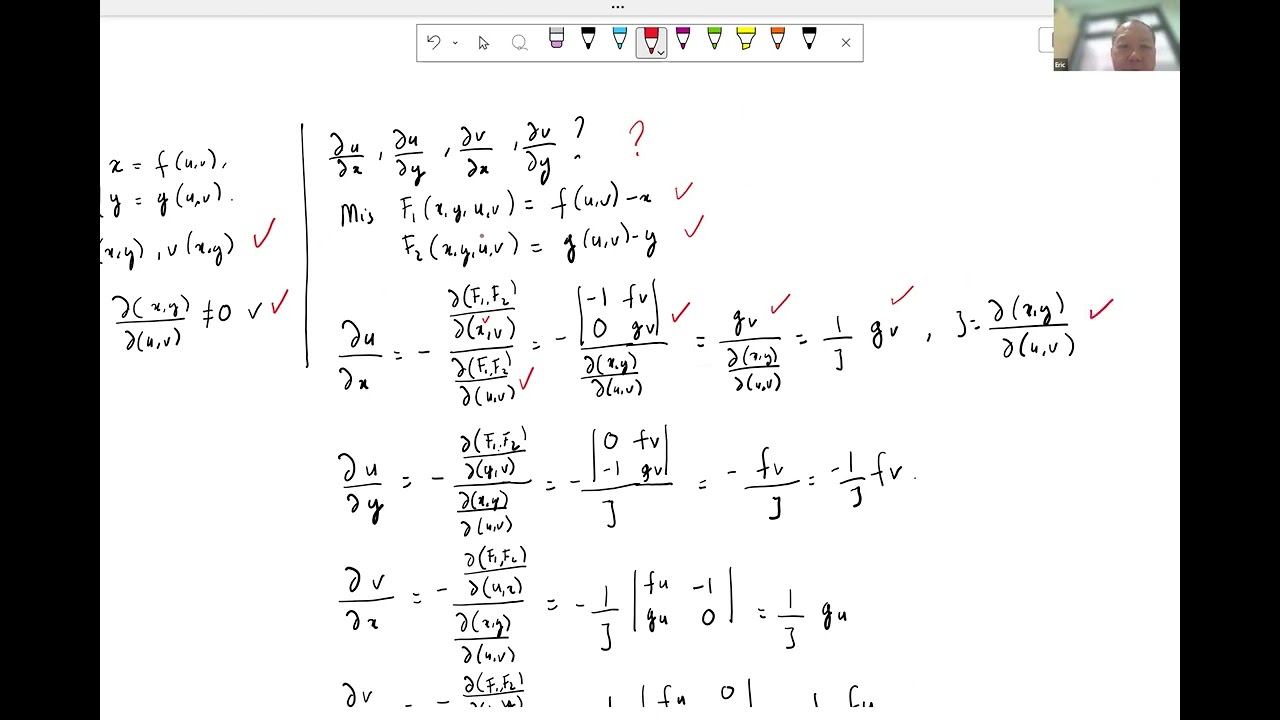 ...
Eric
x = f(u,v),
y = g(u,v).
(x,y), v(x,y) ✓
∂(x,y)/∂(u,v) ≠ 0 ∨ ✓
∂u/∂x, ∂u/∂y, ∂v/∂x, ∂v/∂y ? ?
Mis F₁(x,y,u,v) = f(u,v) - x ✓
F₂(x,y,u,v) = g(u,v) - y ✓
∂u/∂x = - (∂(F₁,F₂)/∂(x,v)) / (∂(F₁,F₂)/∂(u,v)) ✓ = - |-1 fv; 0 gv| / (∂(x,y)/∂(u,v)) ✓ = gv / (∂(x,y)/∂(u,v)) ✓ = 1/J gv ✓, J = ∂(x,y)/∂(u,v) ✓
∂u/∂y = - (∂(F₁,F₂)/∂(y,v)) / (∂(x,y)/∂(u,v)) = - |0 fv; -1 gv| / J = - fv/J = -1/J fv.
∂v/∂x = - (∂(F₁,F₂)/∂(u,x)) / (∂(x,y)/∂(u,v)) = - 1/J |fu -1; gu 0| = 1/J gu
∂v = - ∂(F₁,F₂) 1 |fu 0| 1 fu